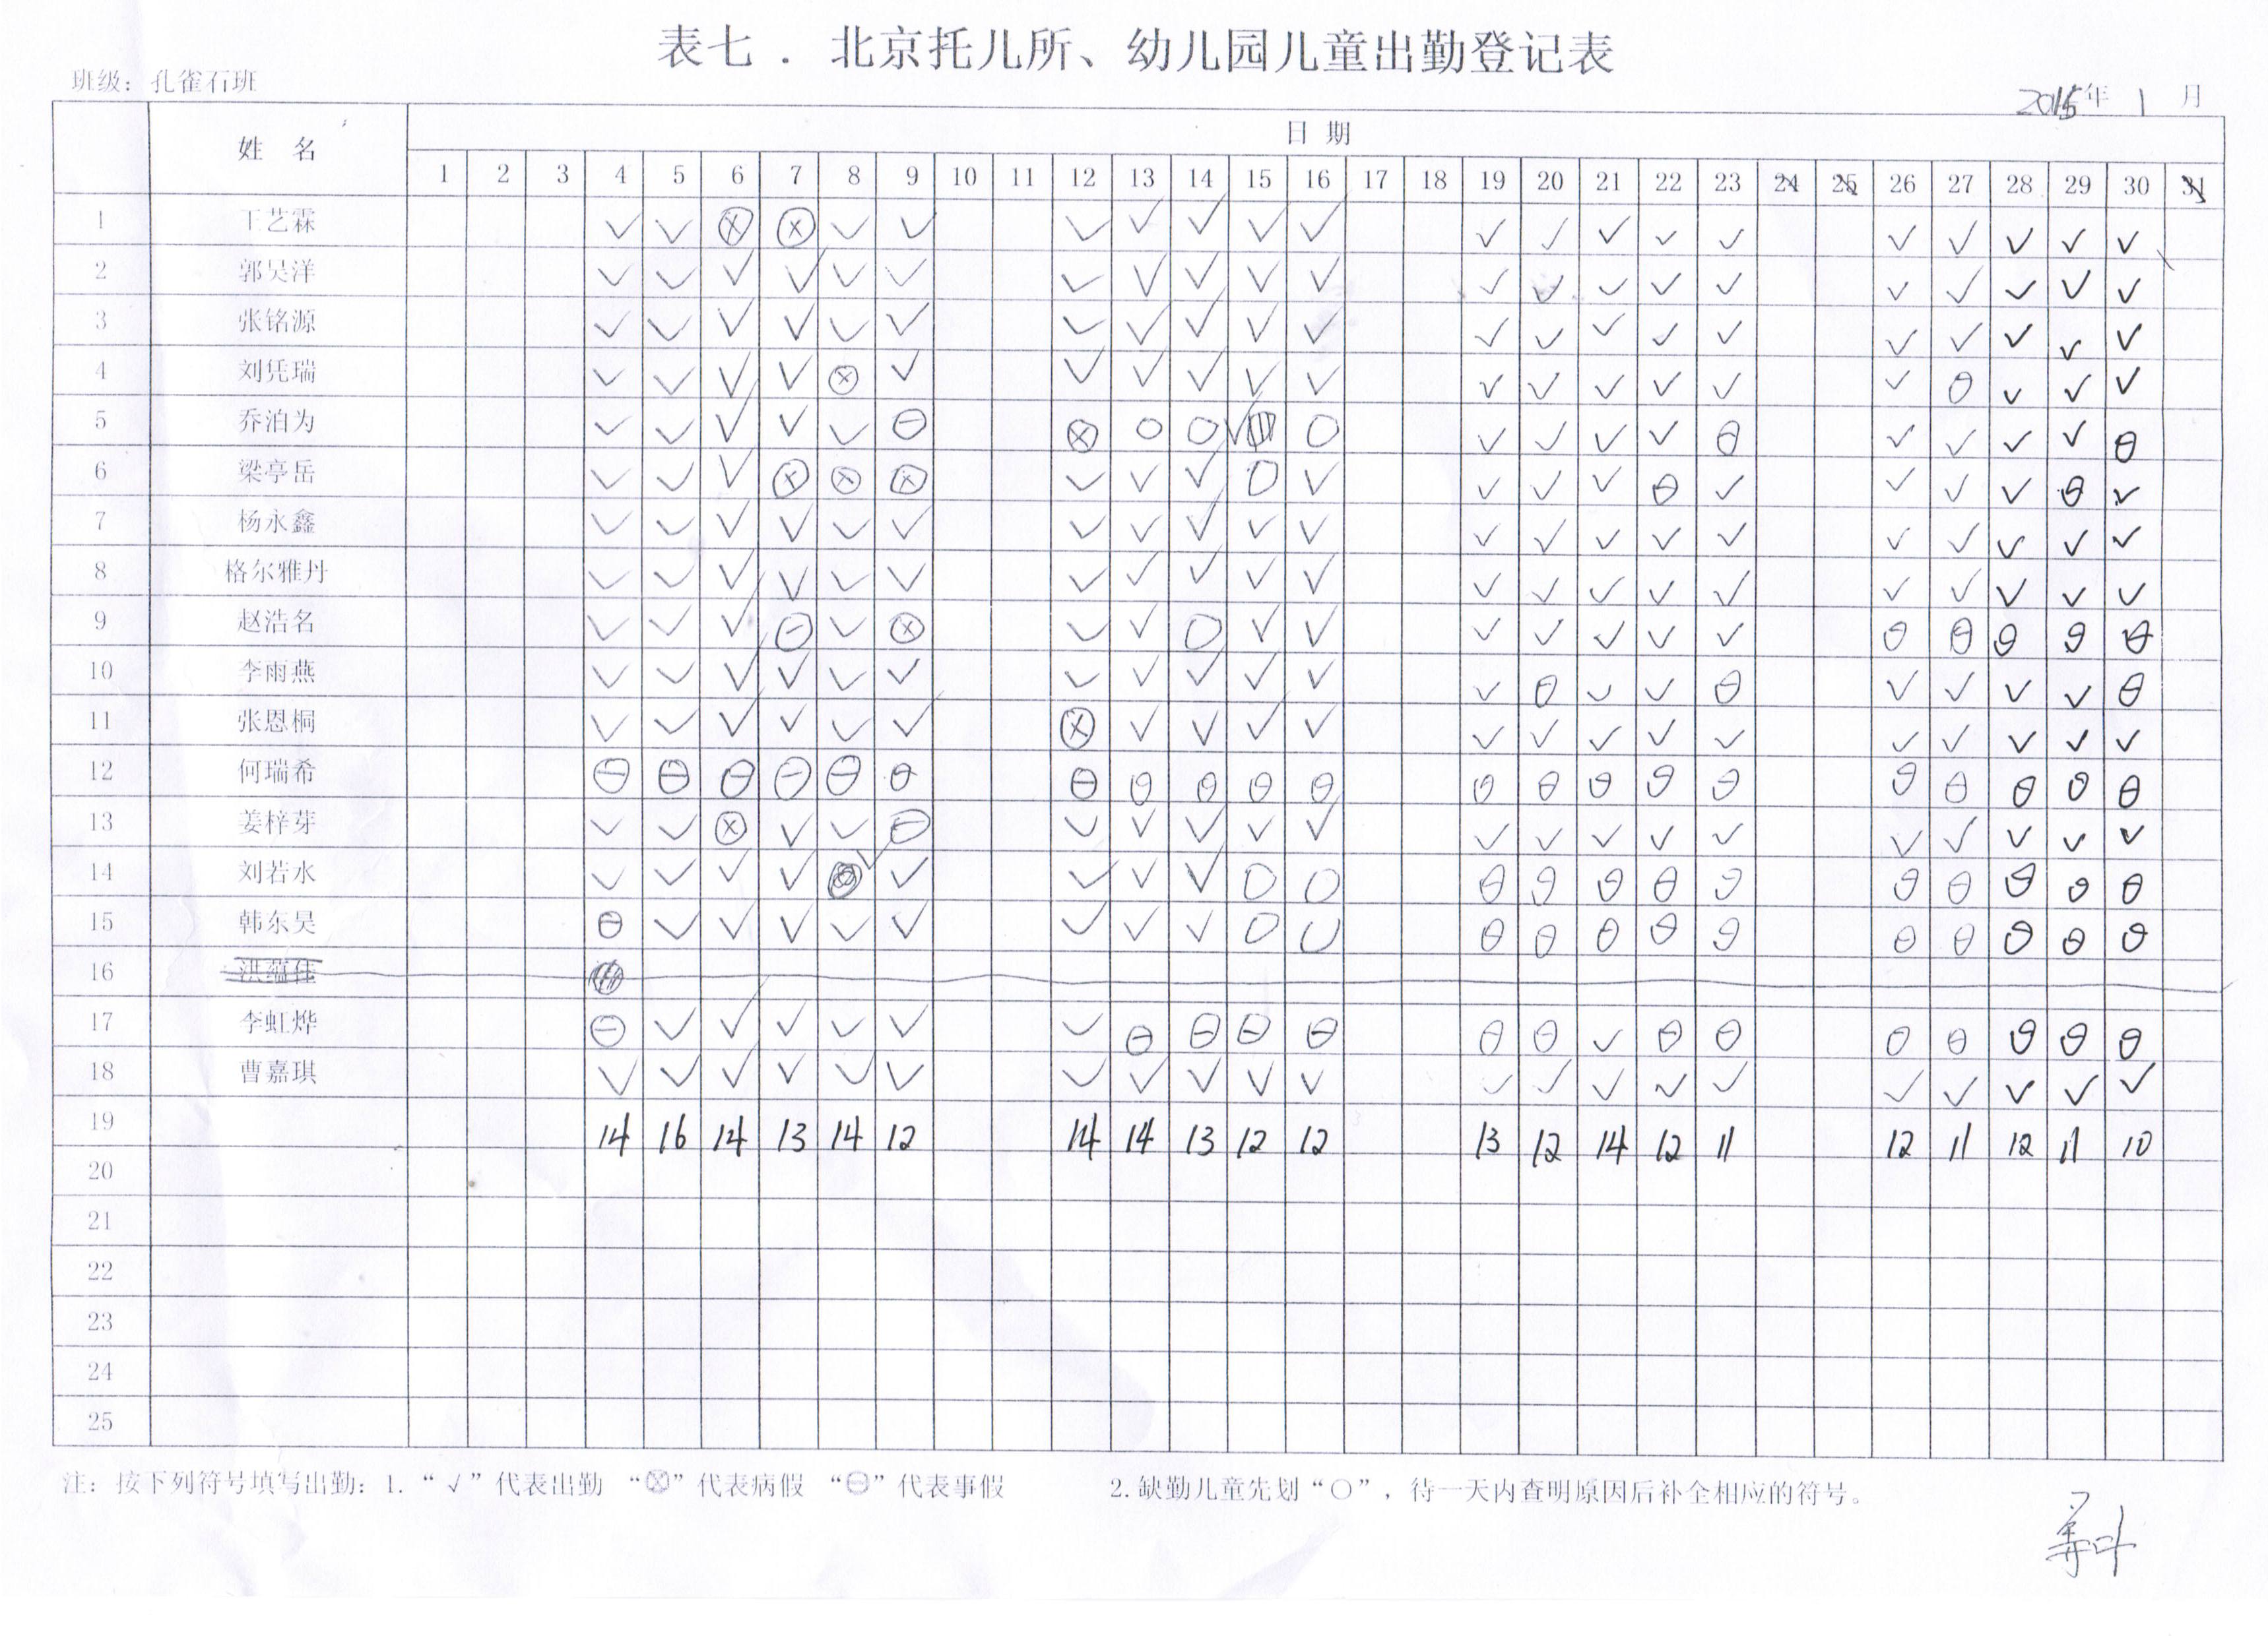 表七 . 北京托儿所、幼儿园儿童出勤登记表
班级: 孔雀石班
2015年 1 月
姓 名 日 期
1 2 3 4 5 6 7 8 9 10 11 12 13 14 15 16 17 18 19 20 21 22 23 24 25 26 27 28 29 30 31
1 王艺霖 √ √ ⊗ ⊗ √ √ √ √ √ √ √ √ √ √ √ √ √ √ √ √ √
2 郭昊洋 √ √ √ √ √ √ √ √ √ √ √ √ √ √ √ √ √ √ √ √ √
3 张铭源 √ √ √ √ √ √ √ √ √ √ √ √ √ √ √ √ √ √ √ √ √
4 刘凭瑞 √ √ √ √ ⊗ √ √ √ √ √ √ √ √ √ √ √ √ ⊖ √ √ √
5 乔泊为 √ √ √ √ √ ⊖ ⊗ ○ ○ √ ○ √ √ √ √ ⊖ √ √ √ √ ⊖
6 梁亭岳 √ √ √ ⊗ ⊗ ⊗ √ √ √ ○ √ √ √ √ ⊖ √ √ √ √ ⊖ √
7 杨永鑫 √ √ √ √ √ √ √ √ √ √ √ √ √ √ √ √ √ √ √ √ √
8 格尔雅丹 √ √ √ √ √ √ √ √ √ √ √ √ √ √ √ √ √ √ √ √ √
9 赵浩名 √ √ √ ⊖ √ ⊗ √ √ ○ √ √ √ √ √ √ √ ⊖ ⊖ ⊖ ⊖ ⊖
10 李雨燕 √ √ √ √ √ √ √ √ √ √ √ √ ⊖ √ √ ⊖ √ √ √ √ ⊖
11 张恩桐 √ √ √ √ √ √ ⊗ √ √ √ √ √ √ √ √ √ √ √ √ √ √
12 何瑞希 ⊖ ⊖ ⊖ ⊖ ⊖ ⊖ ⊖ ⊖ ⊖ ⊖ ⊖ ⊖ ⊖ ⊖ ⊖ ⊖ ⊖ ⊖ ⊖ ⊖ ⊖
13 姜梓芽 √ √ ⊗ √ √ ⊖ √ √ √ √ √ √ √ √ √ √ √ √ √ √ √
14 刘若水 √ √ √ √ √ √ √ √ √ ○ ○ ⊖ ⊖ ⊖ ⊖ ⊖ ⊖ ⊖ ⊖ ⊖ ⊖
15 韩东昊 ⊖ √ √ √ √ √ √ √ √ ○ ○ ⊖ ⊖ ⊖ ⊖ ⊖ ⊖ ⊖ ⊖ ⊖ ⊖
16 洪蕴佳
17 李虹烨 ⊖ √ √ √ √ √ √ ⊖ ⊖ ⊖ ⊖ ⊖ ⊖ √ ⊖ ⊖ ⊖ ⊖ ⊖ ⊖ ⊖
18 曹嘉琪 √ √ √ √ √ √ √ √ √ √ √ √ √ √ √ √ √ √ √ √ √
19 14 16 14 13 14 12 14 14 13 12 12 13 12 14 12 11 12 11 12 11 10
20
21
22
23
24
25
注: 按下列符号填写出勤: 1. “√”代表出勤 “⊗”代表病假 “⊖”代表事假 2.缺勤儿童先划“○”, 待一天内查明原因后补全相应的符号。